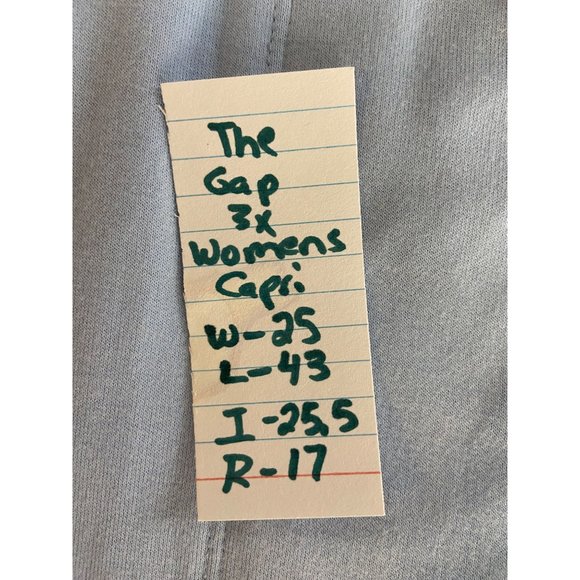 The
Gap
3x
Womens
Capri
W-25
L-43
I-25.5
R-17